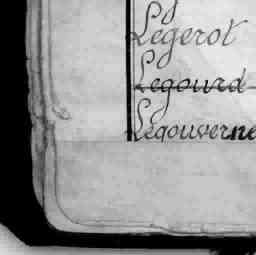 Legerot
Legourd
Legouverne